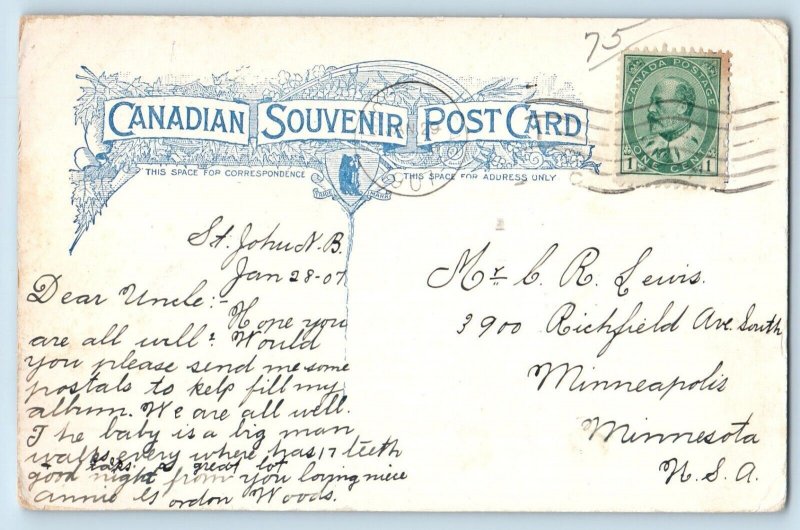 75
CANADIAN SOUVENIR POST CARD
THIS SPACE FOR CORRESPONDENCE
THIS SPACE FOR ADDRESS ONLY
TRADE MARK
CANADA POSTAGE
1 ONE CENT 1
St. John N.B.
Jan 28-07
Dear Uncle:-
Hope you
are all well. Would
you please send me some
postals to help fill my
album. We are all well.
The baby is a big man
walks every where has 17 teeth
talks great lot
good night from your loving niece
Annie Gordon Woods.
Mr C. R. Lewis.
3900 Richfield Ave. South
Minneapolis
Minnesota
U.S.A.